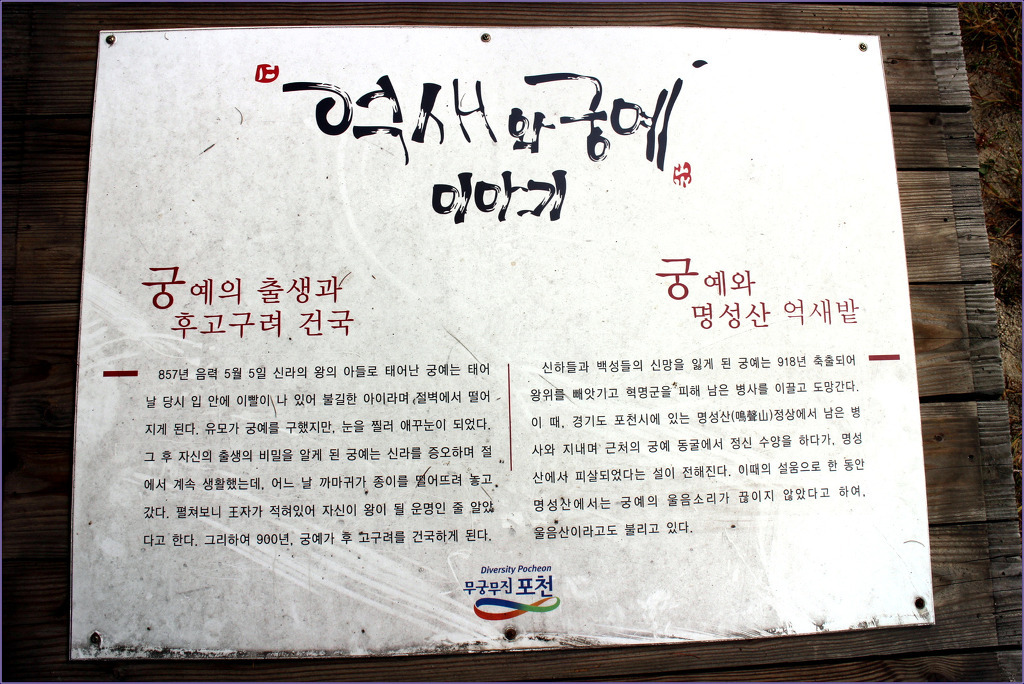 억새와궁예
이야기
궁예의 출생과
후고구려 건국
857년 음력 5월 5일 신라의 왕의 아들로 태어난 궁예는 태어
날 당시 입 안에 이빨이 나 있어 불길한 아이라며 절벽에서 떨어
지게 된다. 유모가 궁예를 구했지만, 눈을 찔러 애꾸눈이 되었다.
그 후 자신의 출생의 비밀을 알게 된 궁예는 신라를 증오하며 절
에서 계속 생활했는데, 어느 날 까마귀가 종이를 떨어뜨려 놓고
갔다. 펼쳐보니 王자가 적혀있어 자신이 왕이 될 운명인 줄 알았
다고 한다. 그리하여 900년, 궁예가 후 고구려를 건국하게 된다.
궁예와
명성산 억새밭
신하들과 백성들의 신망을 잃게 된 궁예는 918년 축출되어
왕위를 빼앗기고 혁명군을 피해 남은 병사를 이끌고 도망간다.
이 때, 경기도 포천시에 있는 명성산(鳴聲山)정상에서 남은 병
사와 지내며 근처의 궁예 동굴에서 정신 수양을 하다가, 명성
산에서 피살되었다는 설이 전해진다. 이때의 설움으로 한 동안
명성산에서는 궁예의 울음소리가 끊이지 않았다고 하여,
울음산이라고도 불리고 있다.
Diversity Pocheon
무궁무진 포천